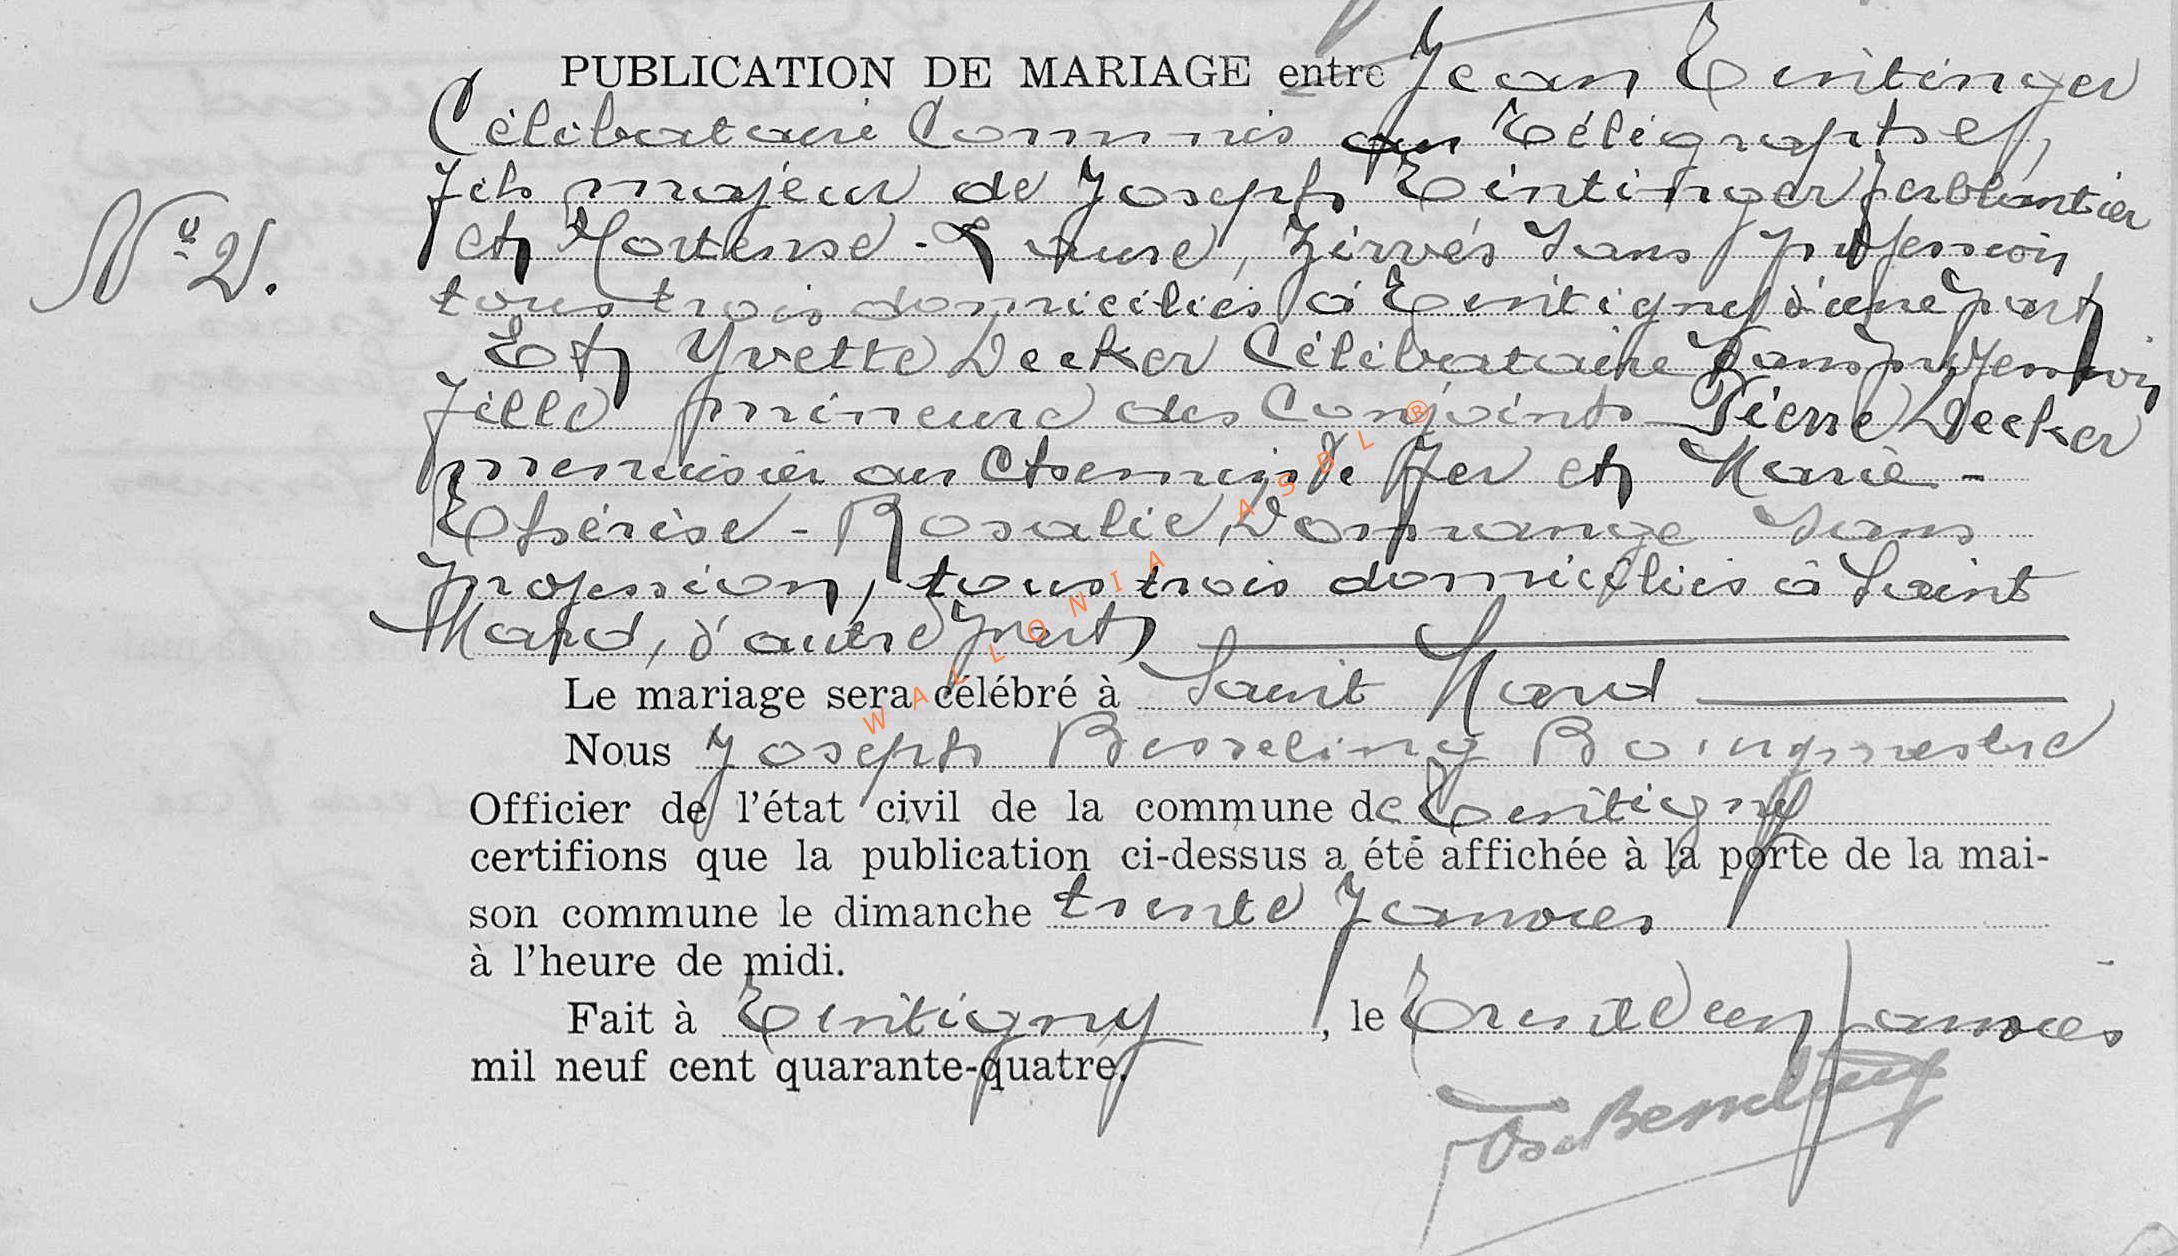 PUBLICATION DE MARIAGE entre Jean Tintinger
Célibataire Commis au Télégraphe,
fils majeur de Joseph Tintinger ferblantier
et Hortense-Laure, Zirvès sans profession
tous trois domiciliés à Tintigny d'une part
Et Yvette Decker Célibataire sans profession
fille mineure des Conjoints Pierre Decker
menuisier au Chemin de fer et Marie-
Thérèse-Rosalie, Domange sans
profession, tous trois domiciliés à Saint
Mard, d'autre part
N° 2.
Le mariage sera célébré à Saint Mard
Nous Joseph Besseling Bourgmestre
Officier de l'état civil de la commune de Tintigny
certifions que la publication ci-dessus a été affichée à la porte de la mai-
son commune le dimanche trente Janvier
à l'heure de midi.
Fait à Tintigny, le Trente et un Janvier
mil neuf cent quarante-quatre.
Jos Besseling
WALLONIA ASBL ®